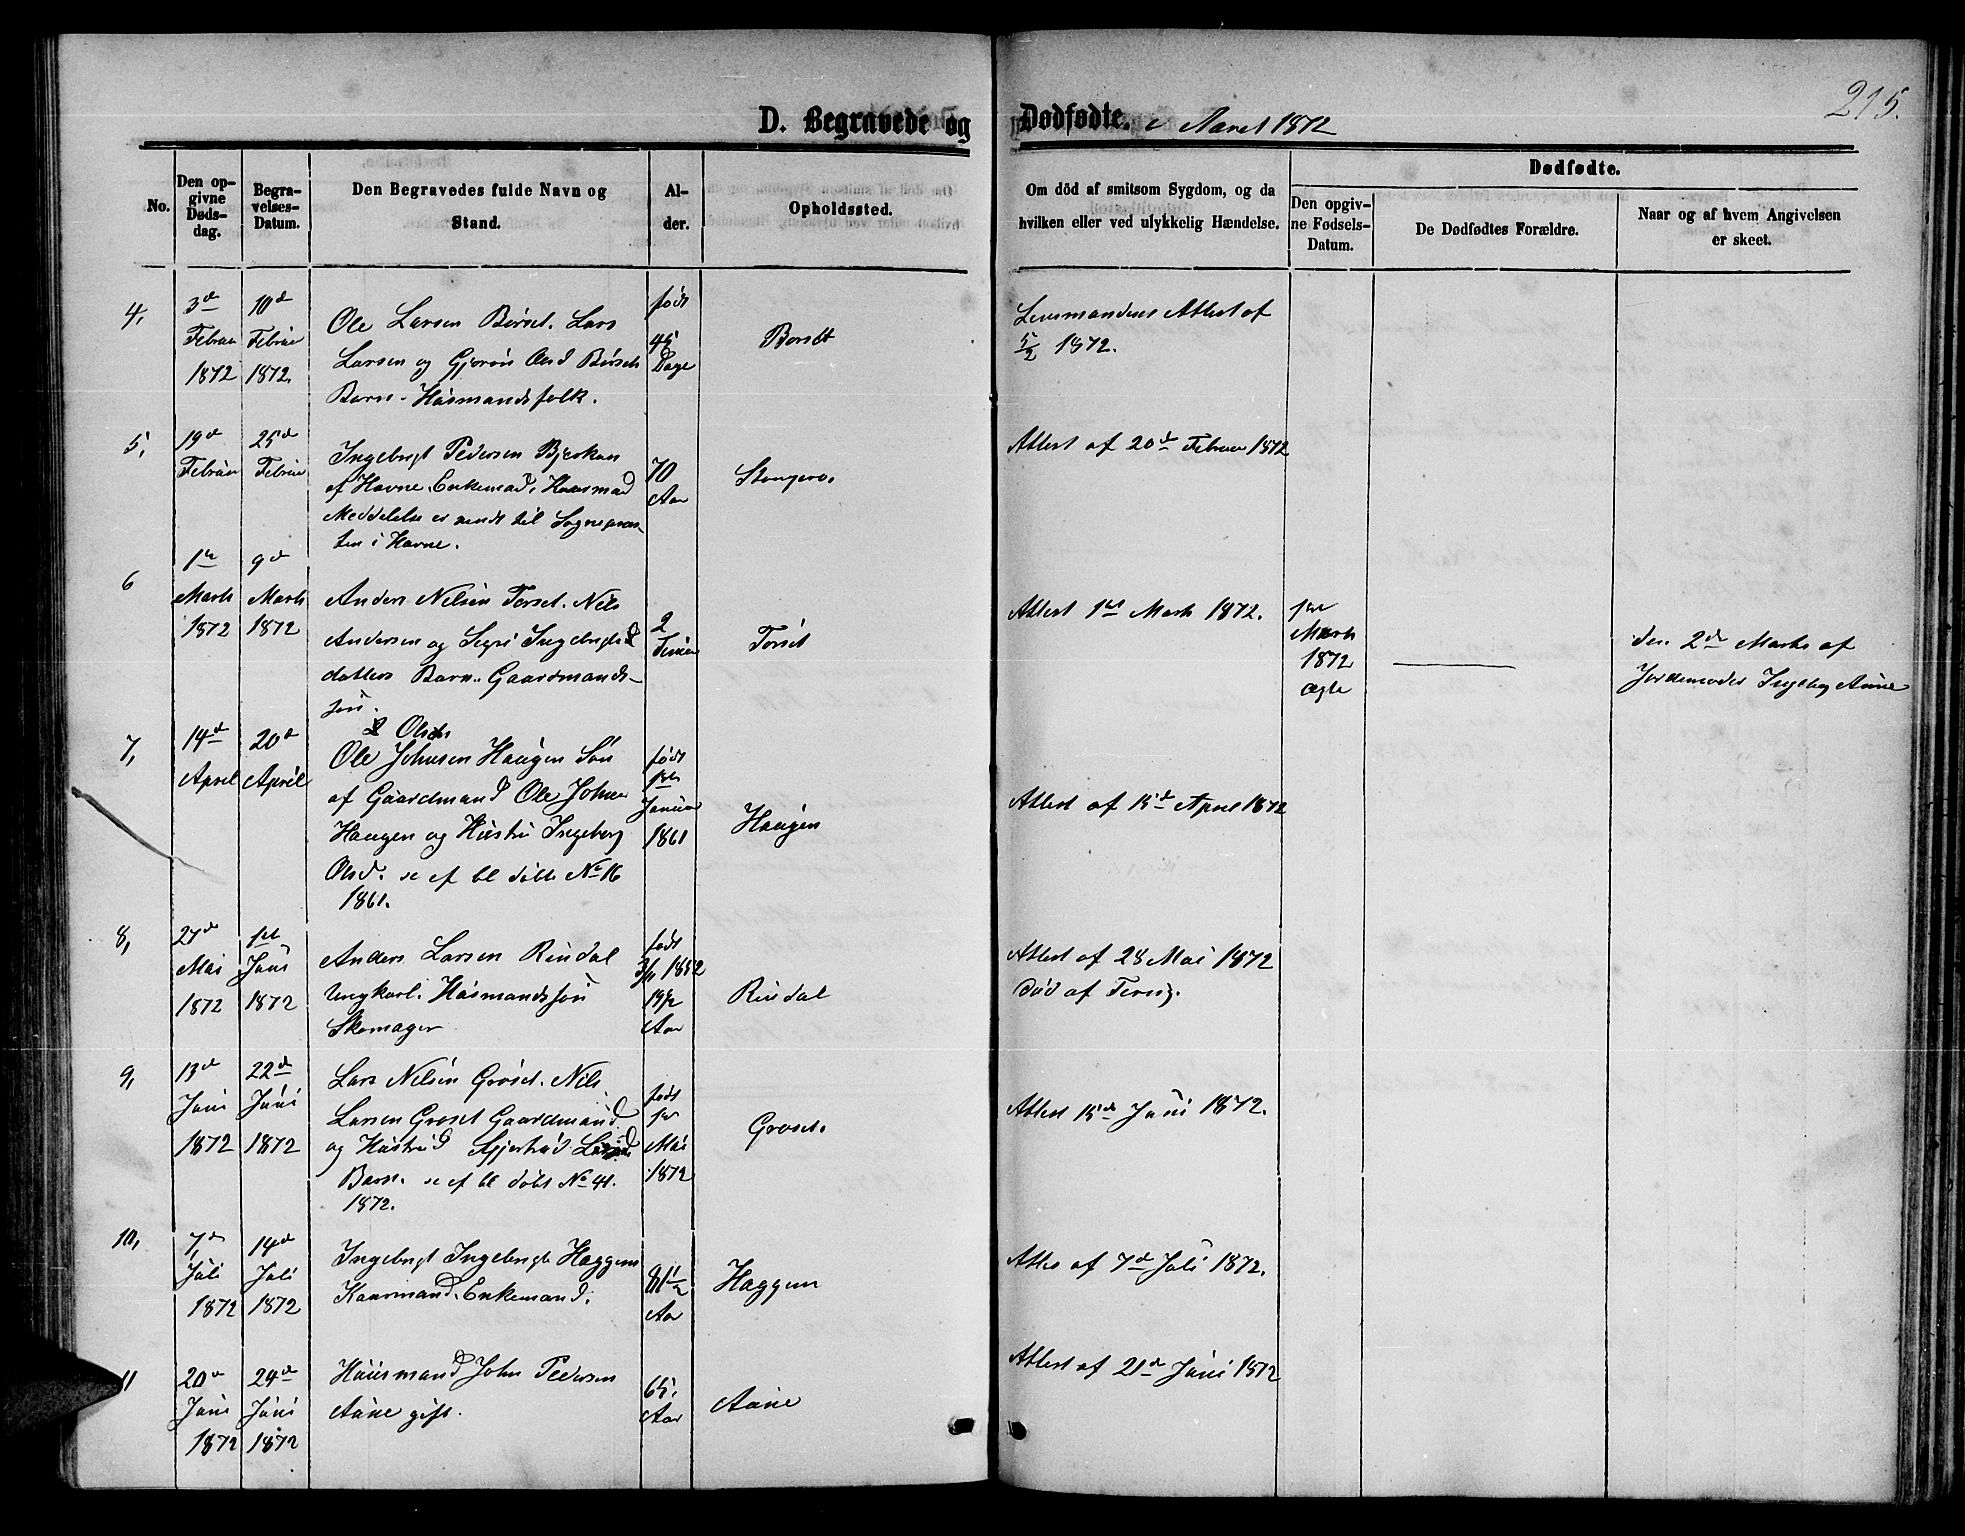 215.
D. Begravede og Dødfødte. i Aaret 1872
No.
Den opgivne Dødsdag.
Begravelses-Datum.
Den Begravedes fulde Navn og Stand.
Alder.
Opholdssted.
Om död af smitsom Sygdom, og da hvilken eller ved ulykkelig Hændelse.
Dødfødte.
Den opgivne Fødsels-Datum.
De Dødfødtes Forældre.
Naar og af hvem Angivelsen er skeet.
4,
3d Februar 1872
10d Februar 1872.
Ole Larsen Børset. Lars
Larsen og Gjøron Olsd Børset
Barn - Húsmandsfolk.
født 45 Dage
Borset
Lensmandens Attest af
5/2 1872.
5,
19d Februar
25d Februar
Ingebrigt Pedersen Bjerkan
af Havne. Enkemand, Huusmand
Meddelelse er sendt til Sognepræs-
ten i Havne.
70 Aar
Attest af 20d Februar 1872
6
1st Marts 1872
9d Marts 1872
Anders Nelsen Torset. Nils
Andersen og Segri Ingebrigts
datters Barn. Gaardmands-
søn.
2 Timer
Torset
Attest 1st Marts 1872.
1st Marts 1872 ægte
den 2d Marts af
Jordemoder Ingeborg Aune
7,
14d April
20d April
Olsen
Ole Johnsen Haugen Søn
af Gaardmand Ole Johnsen
Haugen og Hústru Ingeborg
Olsd. se af bl døbte No 16
1861.
født 1st Januar 1861
Haúgen
Attest af 15d April 1872
8,
27d Mai 1872
1st Júni 1872
Anders Larsen Rindal
Ungkarl. Húsmandssøn
Skomager
født 3/11 1852 19½ Aar
Rindal
Attest af 28 Mai 1872
død af Tering.
9,
13d Júni 1872
22d Júni 1872
Lars Nelsen Groset. Nils
Larsen Groset Gaardmand
og Hústrú
Barn. se af bl døbt No 41.
1872.
født 1st Mai 1872
Groset.
Attest 15d Júni 1872.
10,
7d Júli 1872
14d Juli 1872
Ingebrigt Ingebrigts Haggen
Kaarmand. Enkemand.
81½ Aar
Haggen
Attes af 7d Júli 1872.
11
20d Júni 1872
24d Júni 1872
Húusmand John Pedersen
Aúne gift.
65. Aar
Aúne
Attest af 21d Júni 1872